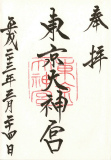 奉拝
東京大神宮
平成二十三年三月二十四日